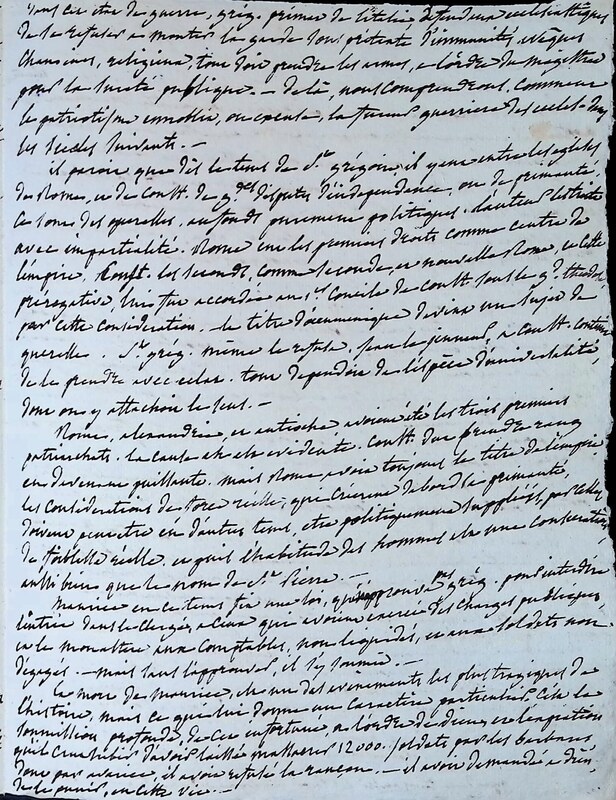 dans cet état de guerre, grég. primat de l'italie défend aux ecclésiastiques
de se refuser a monter la garde sous prétexte d'immunités, evêques
chanoines, religieux, tous doit prendre les armes, a l'ordre du magistrat
pour la sureté publique. — de là, nous comprendrons, comment
le patriotisme ennoblit, ou excusa, la fureur guerriere des eccles. dans
les siècles suivants. —
il paroit que dès le tems de St. grégoire, il y eut entre les eglises
de Rome, et de Constt. de gdes disputes d'indépendance, ou de primauté,
ce sont des querelles, au fonds purement politiques. l'auteur les traite
avec impartialité. Rome eut les premiers droits comme centre de
l'empire, Constt. les seconds, comme seconde, et nouvelle Rome, et cette
prerogative, lui fut accordée au 1er Concile de Constt. sous le gd. théodose
par cette considération. le titre d'oecuménique devint un sujet de
querelle. St. grég. même le refusa. jean le jeuneur, a Constt. continua
de le prendre avec eclat. tout dépendoit de l'espèce d'universalité,
dont on y attachoit le sens. —
Rome, alexandrie, et antioche avoient été les trois premiers
patriarchats. la cause en est evidente. Constt. dut prendre rang
en devenant puissante. mais Rome avoit toujours le titre de l'empire
les considérations de force réelle, qui créerent d'abord sa primauté,
doivent peut être en d'autres tems, etre politiquement suppléés, par celles
de foiblesse réelle. et puis l'habitude des hommes est une considération
aussi bien que le nom de St. Pierre. —
Maurice en ce tems fit une loi, que n'approuva pas grég. pour interdire
l'entrée dans le clergé, a ceux qui avoient exercé des charges publiques
et le monastère aux comptables, non liquidés, et aux soldats non
dégagés. — mais sans l'approuver, il s'y soumit. —
la mort de maurice, est un des événements les plus tragiques de
l'histoire, mais ce qui lui donne un caractère particulier, c'est la
soumission profonde, de cet infortuné, a l'ordre de dieu, et l'expiation
qu'il crut subir d'avoir laissé massacrer 12000. soldats par les barbares
dont par avarice, il avoit refusé la rançon. — il avoit demandé a dieu
de le punir, en cette vie. —